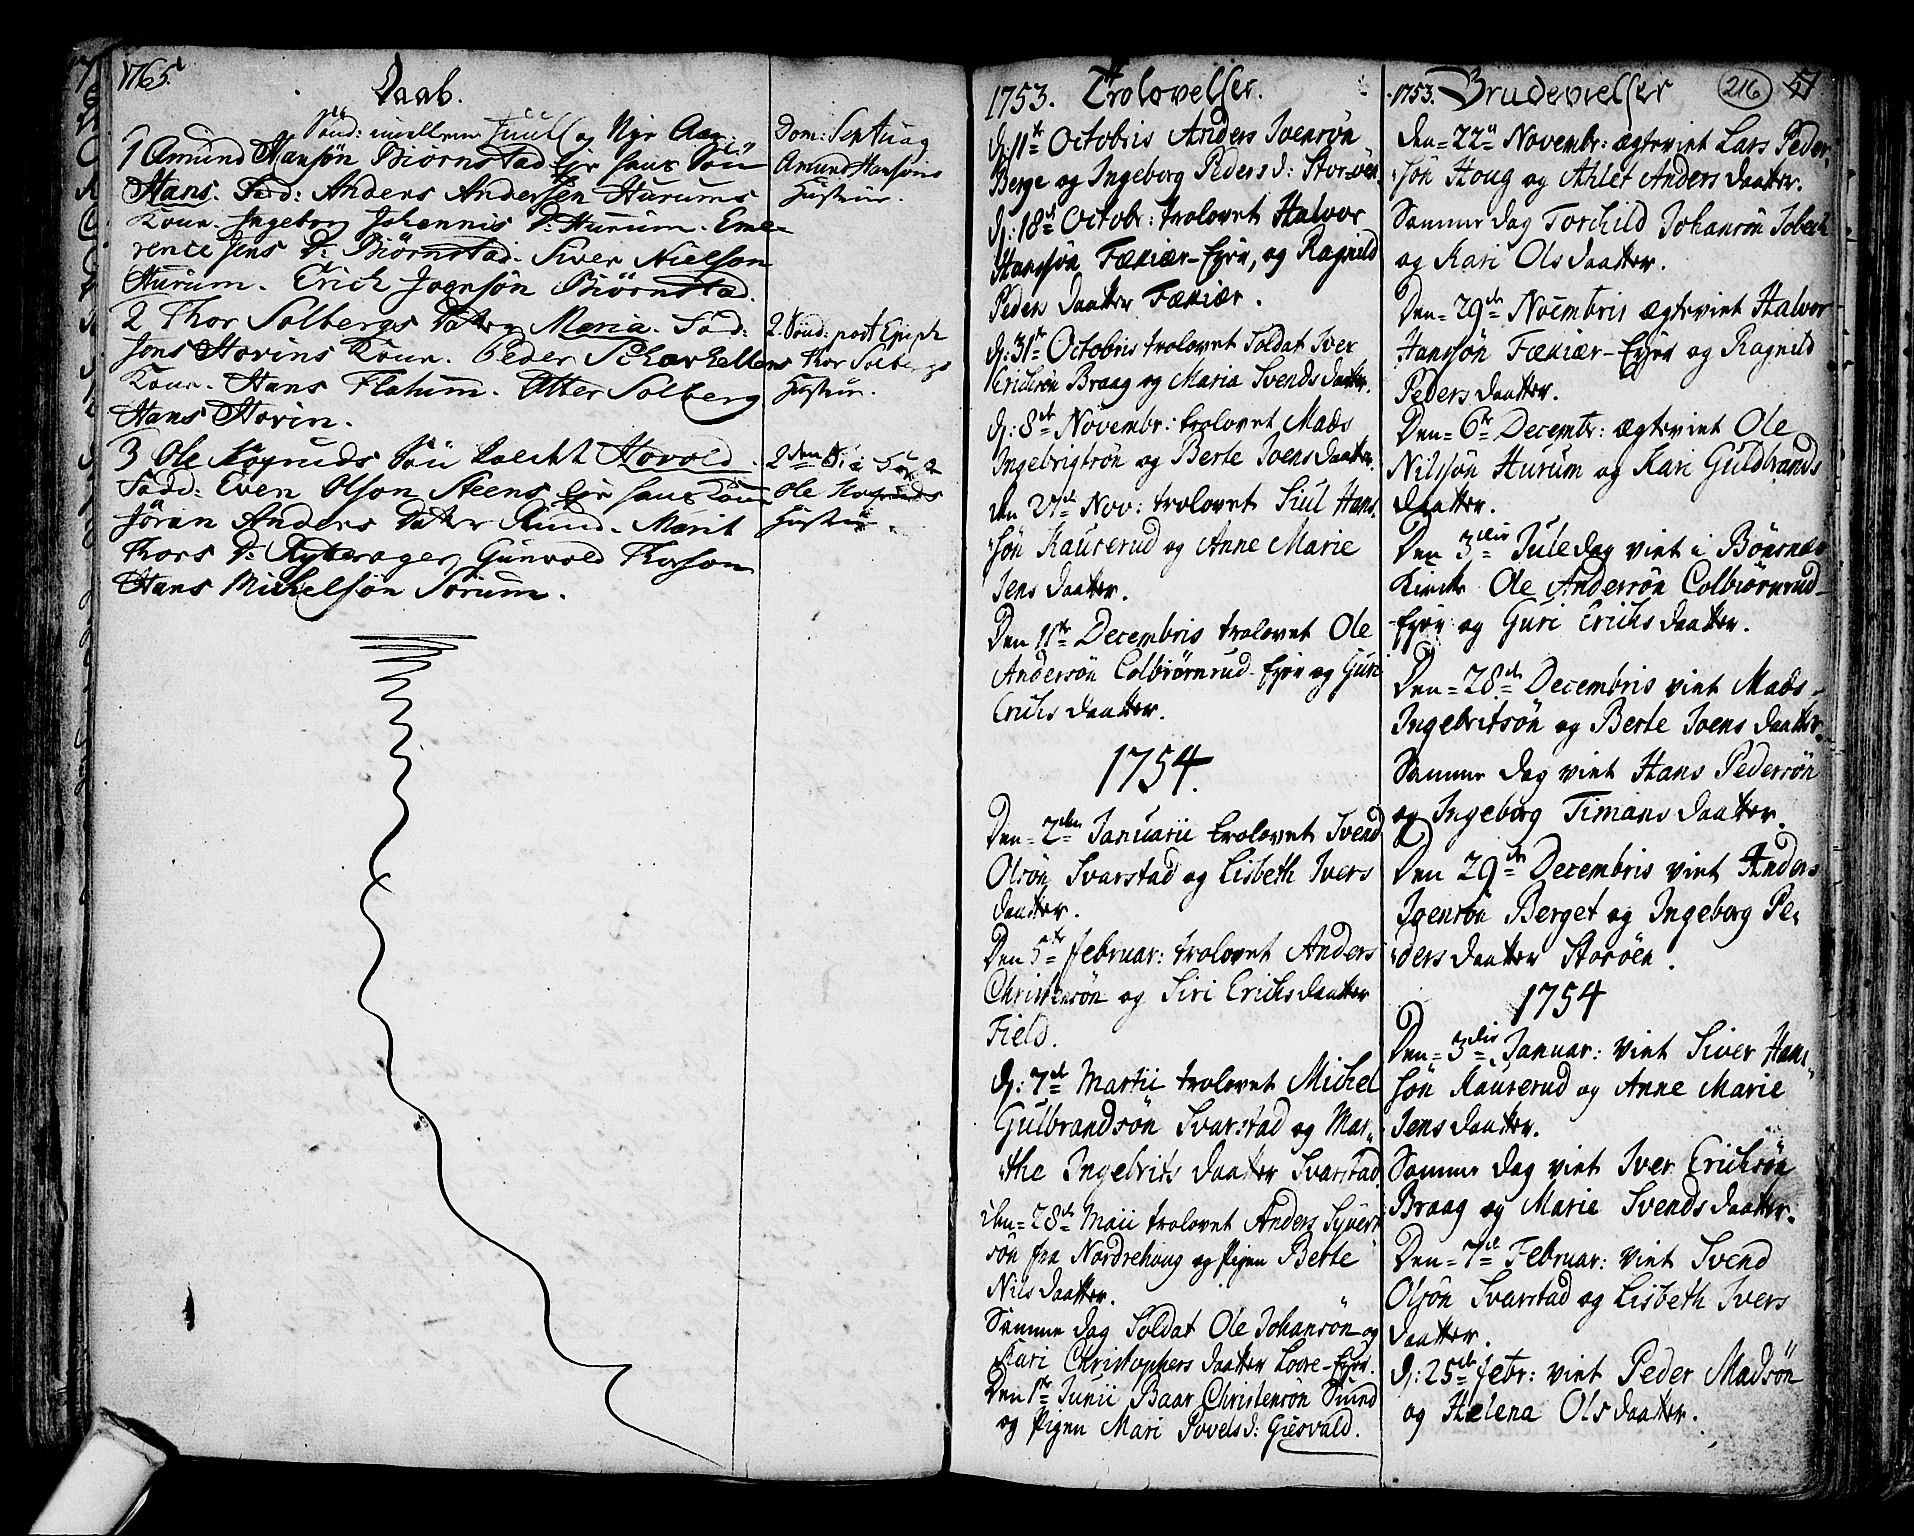 1765.
Daab.
Sønd: imellem Juul og Nye Aar:
1 Amund Hansøn Biørnstad Eje hans Søn
Hans. Fad: Anders Andersen Hurums
Kone. Ingebor Johannis D: Hurum. Eme-
rence Jens D: Biørnstad. Siver Nielson
Hurum. Erich Joensøn Biørnstad.
2 Thor Solbergs Datter Maria. Fad:
Jons Hovins Kone. Peder Scharkellens
Kone. Hans Flatum. Atter Solberg
Hans Hovin.
3 Ole Søn kaldt Hovold.
Fadd: Even Olson Steens Eje hans Kone
Jöran Anders Datter Rund. Marit
Thors D: Rytterager, Gunvold Thorson
Hans Michelsön Sörum.
Dom: Septuag
Amund Hansöns
Hustrue.
2. Sønd: post Epiph
Thor Solbergs
Hustrue.
Ole
Hustrue.
1753. Trolovelser.
d: 11te Octobris Anders Ivensøn
Berge og Ingeborg Pedersd: Storøen.
d: 18de Octobr: trolovet Halvor
Hansøn Fækiær-Eyre, og Ragnild
Peders Daatter Fækiær.
d: 31te Octobris trolovet Soldat Iver
Erichsøn Braag og Maria Svends daatter.
d: 8de Novembr: trolovet Mads
Ingebrigtsøn og Berte Ivens daatter.
den 27de Nov: trolovet Siul Hans-
søn Kauserud og Anne Marie
Jens daatter.
Den 11te Decembris trolovet Ole
Andersøn Colbiørnrud-Eyre og Guri
Erichs daatter.
1754.
Den 2den Januarii trolovet Svend
Olsøn Svarstad og Lisbeth Ivers
daatter.
Den 5te Februar: trolovet Anders
Christensøn og Siri Erichsdaatter
Field.
d: 7de Martii trolovet Michel
Gulbrandsøn Svarstad og Mar-
the Ingebrits daatter Svarstad.
den 28de Maii trolovet Anders Syver-
søn fra Nordrehoug og Pigen Berte
Nils daatter.
Samme dag Soldat Ole Johansøn og
Kari Christophers daatter Loore-Eyre.
Den 1te Junii Baar Christensøn Sund
og Pigen Mari Povelsd: Giesvald.
1753. Brudevielser
216
51
Den 22de Novembr: ægteviet Lars Peder-
søn Houg og Ahlet Anders daatter.
Samme dag Torchild Johansøn Sobech
og Kari Ols daatter.
Den 29de Noembris ægteviet Halvor
Hansøn Fækiær-Eyre og Ragnild
Peders daatter.
Den 6te Decembr: ægteviet Ole
Nilssøn Hurum og Kari Guldbrands
daatter.
Den 3die Juledag viet i Bönsnæs
Kircke Ole Andersøn Colbiørnrud-
Eyre og Guri Erichs daatter.
Den 28de Decembris viet Mads
Ingebritsøn og Berte Ivens daatter.
Samme dag viet Hans Pedersøn
og Ingeborg Timans daatter.
Den 29de Decembris viet Anders
Ivensøn Berget og Ingeborg Pe-
ders daatter Storöen.
1754
Den 3die Januar: viet Siver Hans-
søn Kauserud og Anne Marie
Jens daatter.
Samme dag viet Iver Erichsøn
Braag og Marie Svends daatter.
Den 7de Februar: viet Svend
Olsøn Svarstad og Lisbeth Ivers
daatter.
d: 25de Febr: viet Peder Madsøn
og Helena Ols daatter.